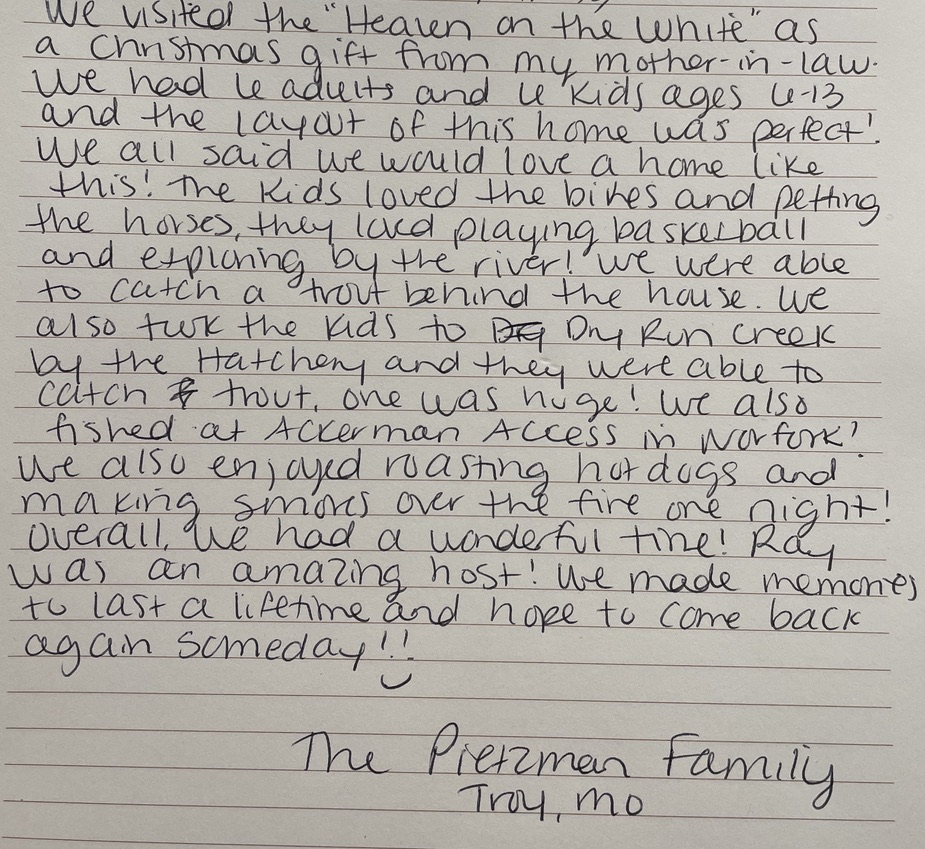 We visited the "Heaven on the White" as
a Christmas gift from my mother-in-law.
We had 6 adults and 4 kids ages 4-13
and the layout of this home was perfect!
We all said we would love a home like
this! The kids loved the bikes and petting
the horses, they loved playing basketball
and exploring by the river! We were able
to catch a trout behind the house. We
also took the kids to Dry Run Creek
by the Hatchery and they were able to
catch trout, one was huge! We also
fished at Ackerman Access in Norfork!
We also enjoyed roasting hotdogs and
making smores over the fire one night!
Overall, we had a wonderful time! Ray
was an amazing host! We made memories
to last a lifetime and hope to come back
again someday!!
The Pietzman Family
Troy, MO